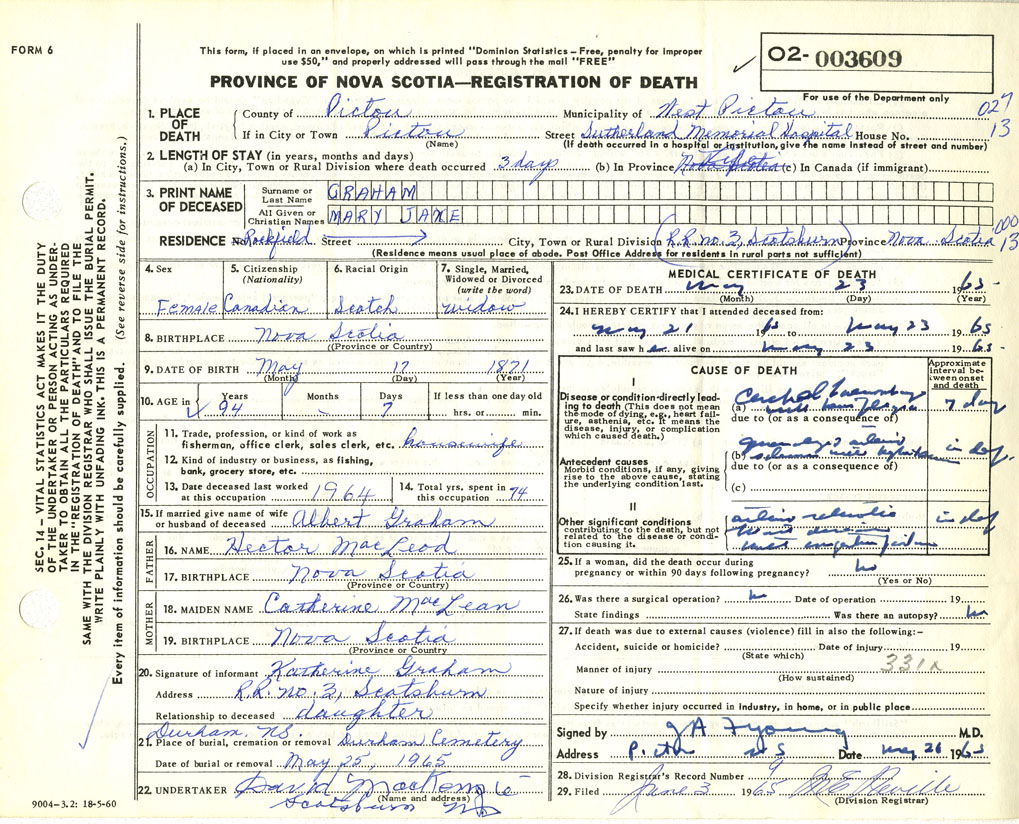 FORM 6
This form, if placed in an envelope, on which is printed "Dominion Statistics – Free, penalty for improper
use $50," and properly addressed will pass through the mail "FREE"
PROVINCE OF NOVA SCOTIA—REGISTRATION OF DEATH
02- 003609
For use of the Department only
027
13
1. PLACE OF DEATH
County of Pictou Municipality of West Pictou
If in City or Town Pictou Street Sutherland Memorial Hospital House No.
(Name) (If death occurred in a hospital or institution, give the name instead of street and number)
2. LENGTH OF STAY (in years, months and days)
(a) In City, Town or Rural Division where death occurred 3 days (b) In Province (c) In Canada (if immigrant)
3. PRINT NAME OF DECEASED
Surname or Last Name GRAHAM
All Given or Christian Names MARY JANE
000
13
RESIDENCE No. Rockfield Street City, Town or Rural Division R.R. no. 3, Scotsburn Province Nova Scotia
(Residence means usual place of abode. Post Office Address for residents in rural parts not sufficient)
4. Sex Female
5. Citizenship (Nationality) Canadian
6. Racial Origin Scotch
7. Single, Married, Widowed or Divorced (write the word) widow
8. BIRTHPLACE Nova Scotia
(Province or Country)
9. DATE OF BIRTH May 17 1871
(Month) (Day) (Year)
10. AGE in Years 94 Months - Days 7 If less than one day old hrs. or min.
OCCUPATION
11. Trade, profession, or kind of work as fisherman, office, sales clerk, etc. housewife
12. Kind of industry or business, as fishing, bank, grocery store, etc.
13. Date deceased last worked at this occupation 1964
14. Total yrs. spent in this occupation 74
15. If married give name of wife or husband of deceased Albert Graham
FATHER
16. NAME Hector MacLeod
17. BIRTHPLACE Nova Scotia
(Province or Country)
MOTHER
18. MAIDEN NAME Catherine MacLean
19. BIRTHPLACE Nova Scotia
(Province or Country)
20. Signature of informant Katherine Graham
Address R.R. no. 3, Scotsburn
Relationship to deceased daughter
Durham, N.S.
21. Place of burial, cremation or removal Durham Cemetery
Date of burial or removal May 25, 1965
22. UNDERTAKER David MacKenzie
(Name and address)
Scotsburn NS
9004-3.2: 18-5-60
MEDICAL CERTIFICATE OF DEATH
23. DATE OF DEATH May 23 1965
(Month) (Day) (Year)
24. I HEREBY CERTIFY that I attended deceased from:
May 21 65 to May 23 1965
and last saw her alive on May 23 1965
CAUSE OF DEATH
Approximate interval between onset and death
I
Disease or condition directly leading to death (This does not mean the mode of dying, e.g., heart failure, asthenia, etc. It means the disease, injury, or complication which caused death.)
(a) with hemiplegia
7 day
due to (or as a consequence of)
Antecedent causes
Morbid conditions, if any, giving rise to the above cause, stating the underlying condition last.
(b)
due to (or as a consequence of)
(c)
II
Other significant conditions contributing to the death, but not related to the disease or condition causing it.
25. If a woman, did the death occur during pregnancy or within 90 days following pregnancy? No
(Yes or No)
26. Was there a surgical operation? Date of operation 19
State findings Was there an autopsy?
27. If death was due to external causes (violence) fill in also the following:–
Accident, suicide or homicide? Date of injury 19
(State which)
331x
Manner of injury
(How sustained)
Nature of injury
Specify whether injury occurred in industry, in home, or in public place
Signed by J A F Young M.D.
Address Pictou N S Date May 26 1965
28. Division Registrar's Record Number 9
29. Filed June 3 1965
(Division Registrar)
SEC. 14 – VITAL STATISTICS ACT MAKES IT THE DUTY
OF THE UNDERTAKER OR PERSON ACTING AS UNDER-
TAKER TO OBTAIN ALL THE PARTICULARS REQUIRED
IN THE "REGISTRATION OF DEATH" AND TO FILE THE
SAME WITH THE DIVISION REGISTRAR WHO SHALL ISSUE THE BURIAL PERMIT.
WRITE PLAINLY WITH UNFADING INK. THIS IS A PERMANENT RECORD.
Every item of information should be carefully supplied. (See reverse side for instructions.)